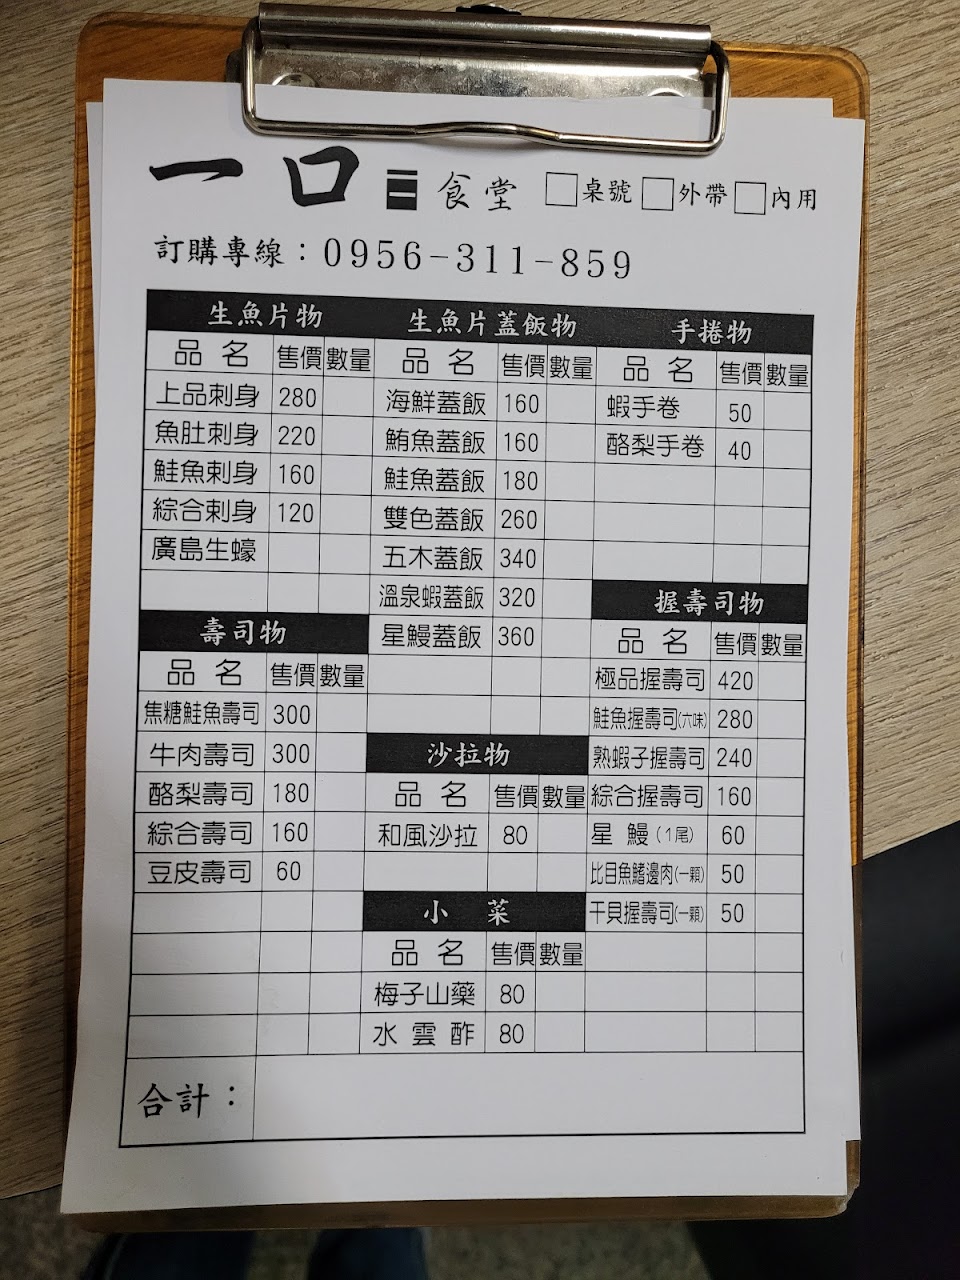 一口三食堂 □桌號 □外帶 □內用
訂購專線：0956-311-859
生魚片物
品名 售價 數量
上品刺身 280
魚肚刺身 220
鮭魚刺身 160
綜合刺身 120
廣島生蠔
壽司物
品名 售價 數量
焦糖鮭魚壽司 300
牛肉壽司 300
酪梨壽司 180
綜合壽司 160
豆皮壽司 60
生魚片蓋飯物
品名 售價 數量
海鮮蓋飯 160
鮪魚蓋飯 160
鮭魚蓋飯 180
雙色蓋飯 260
五木蓋飯 340
溫泉蝦蓋飯 320
星鰻蓋飯 360
沙拉物
品名 售價 數量
和風沙拉 80
小菜
品名 售價 數量
梅子山藥 80
水雲酢 80
手捲物
品名 售價 數量
蝦手卷 50
酪梨手卷 40
握壽司物
品名 售價 數量
極品握壽司 420
鮭魚握壽司(六味) 280
熟蝦子握壽司 240
綜合握壽司 160
星鰻(1尾) 60
比目魚鰭邊肉(一顆) 50
干貝握壽司(一顆) 50
合計：